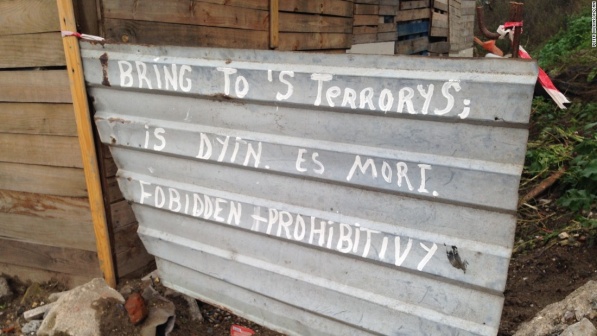 BRING TO 'S TERRORYS;
is DYIN. ES MORI.
FOBIDDEN +PROHIBITIVY